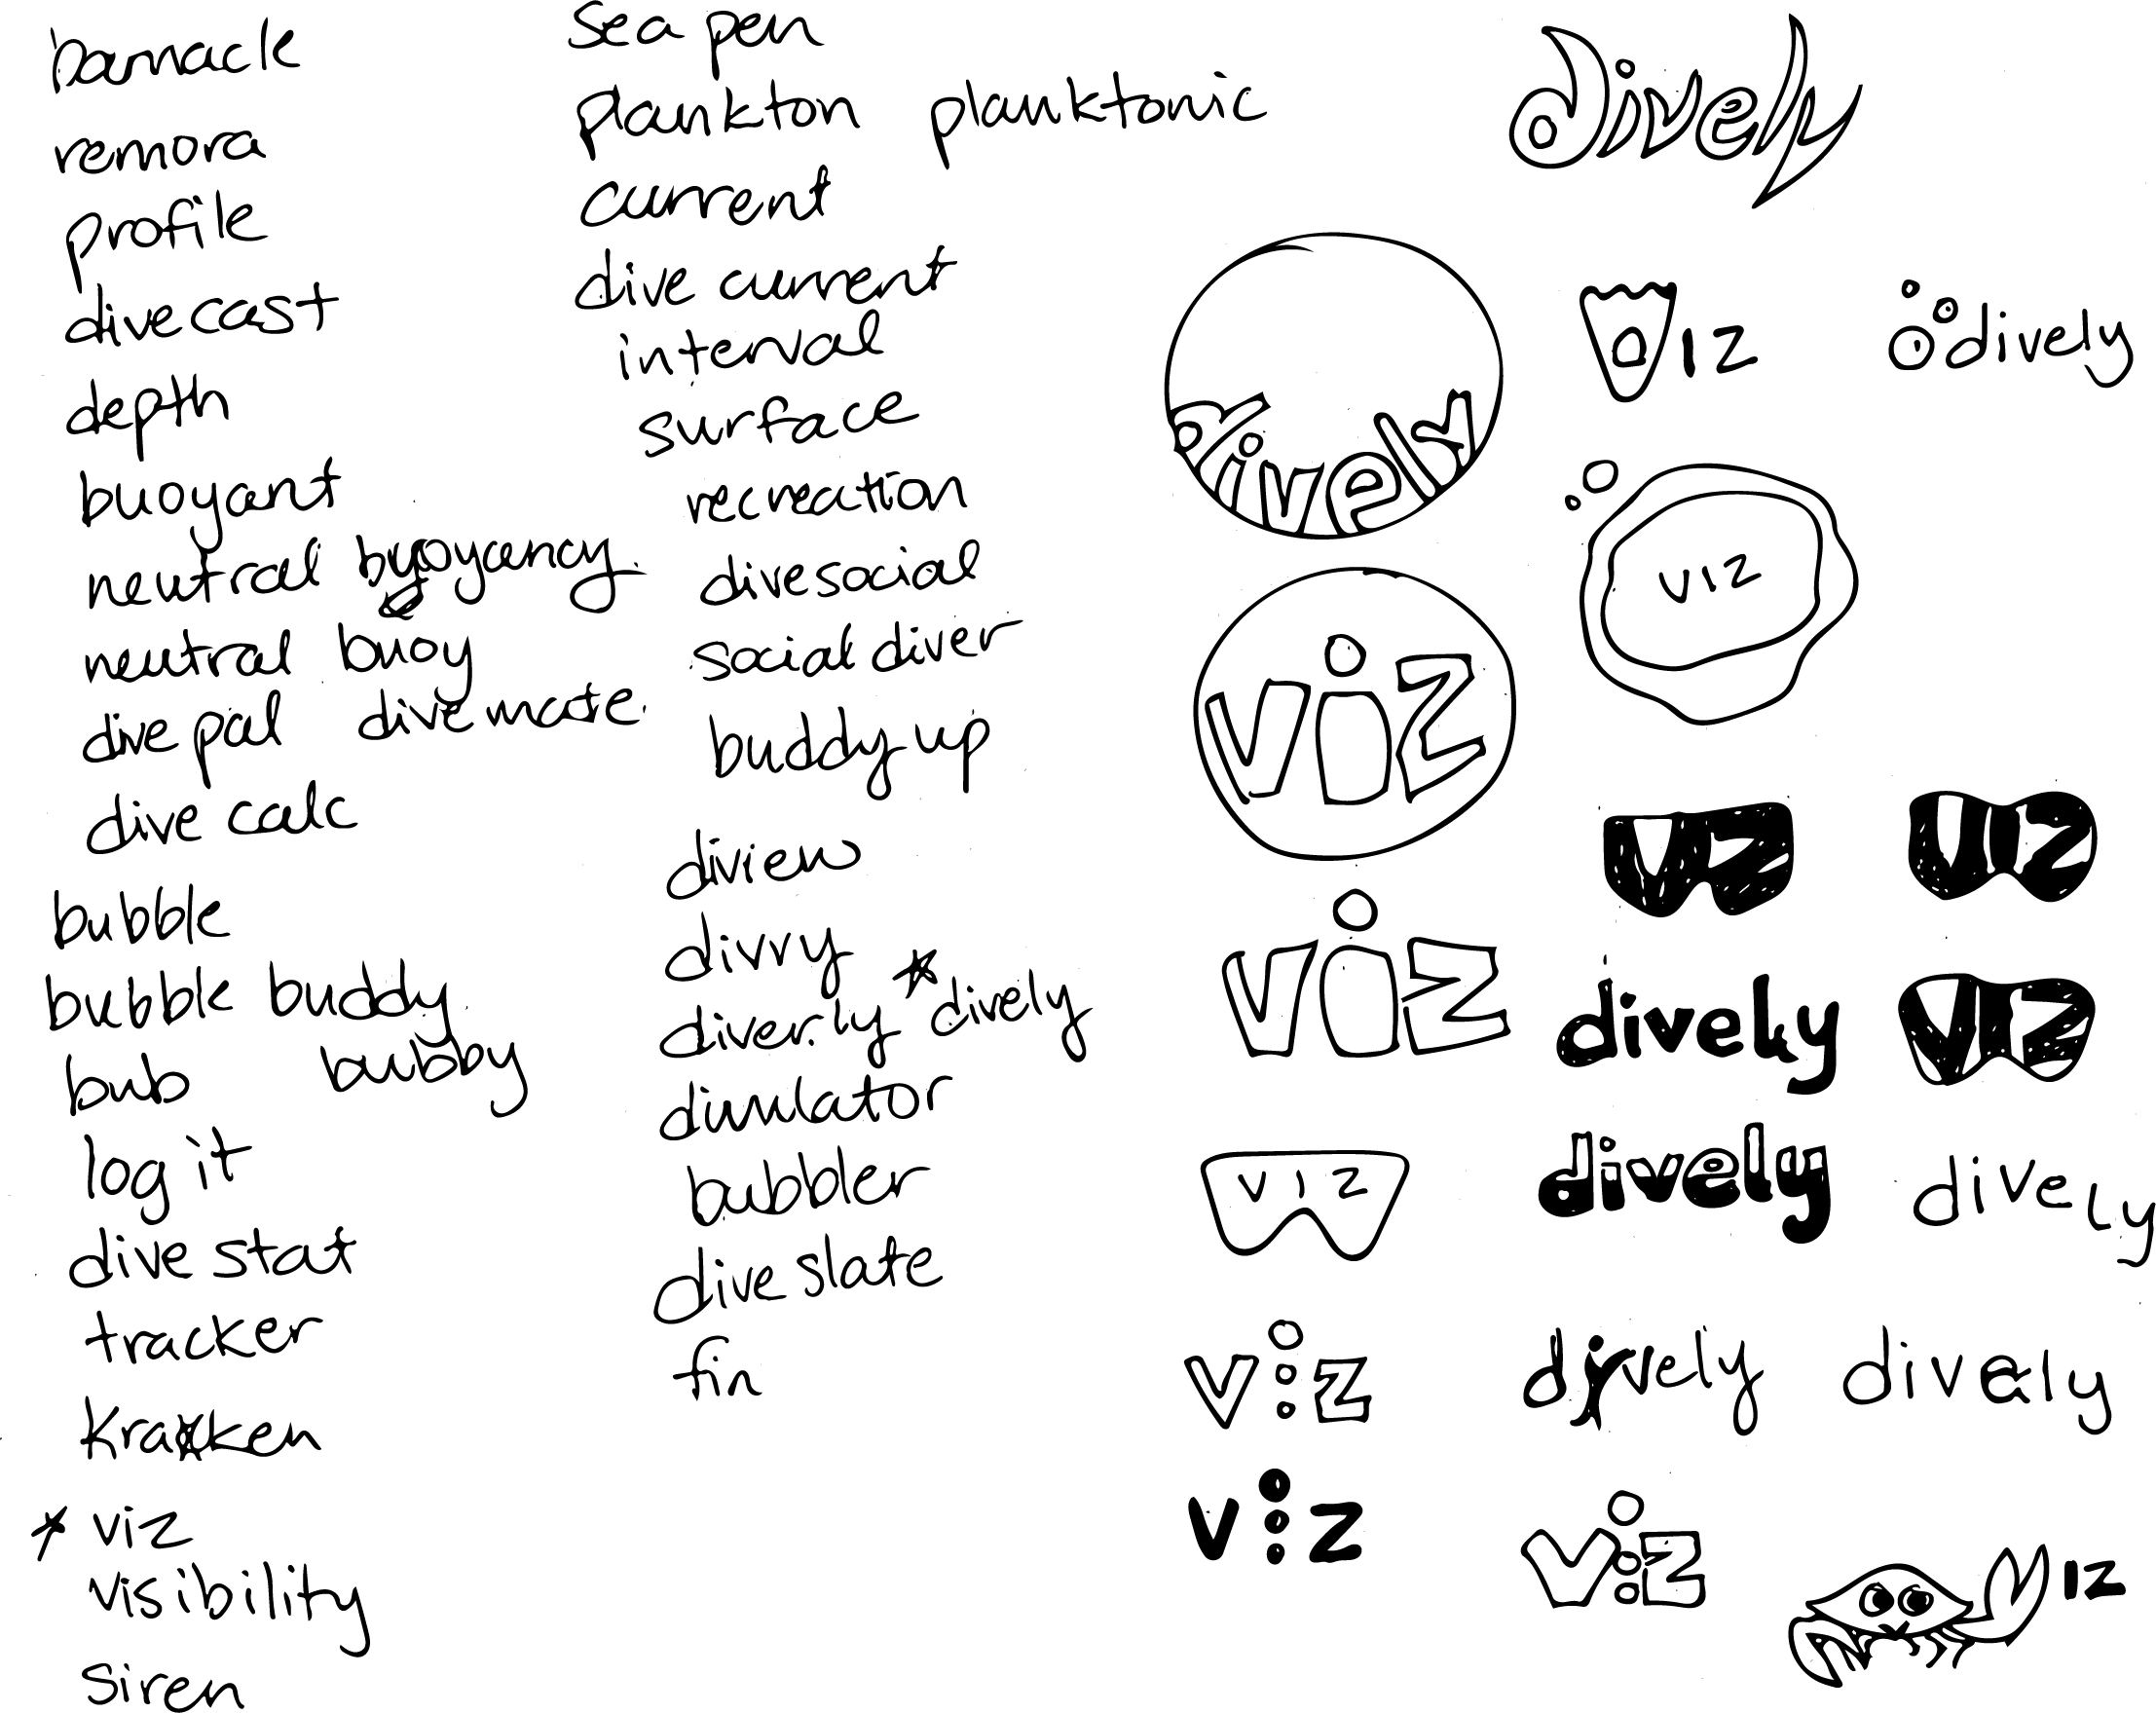 barnacle
remora
profile
divecast
depth
buoyant
neutral buoyancy
neutral buoy
dive pal dive mate
dive calc
bubble
bubble buddy
bub bubby
log it
dive stat
tracker
kraken
viz
visibility
siren
sea pen
plankton planktonic
current
dive current
interval
surface
recreation
divesocial
social diver
buddy up
diview
divvy
diver.ly dively
divulator
bubbler
dive slate
fin
dively
dively
viz
dively
viz
viz
viz
viz
viz
viz
dively
viz
viz
dively
dively
viz
dively
dively
viz
viz
viz